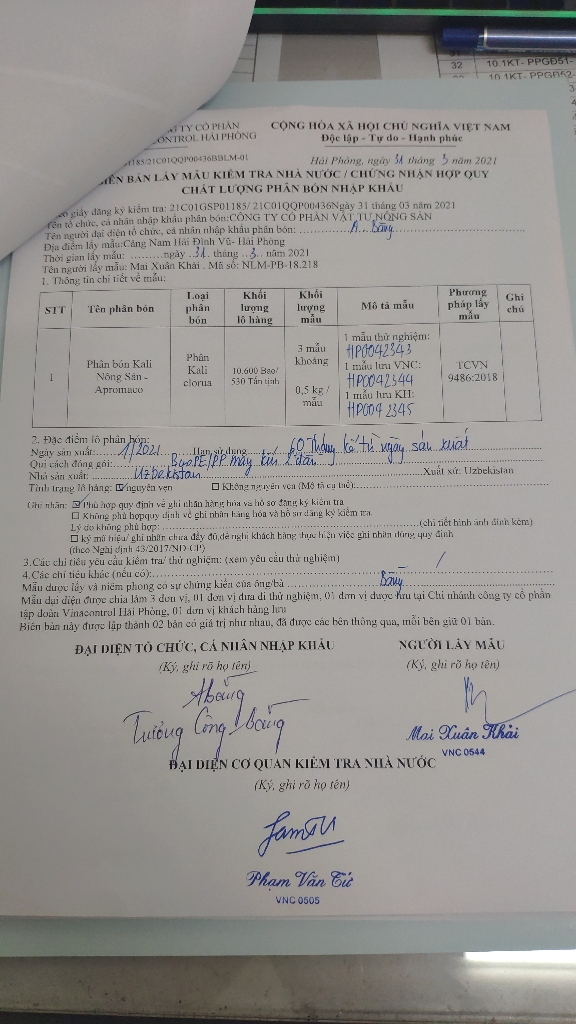 32 10.1KT- PPGĐ51-
10.1KT- PPGĐ52-
TY CỔ PHẦN CỘNG HÒA XÃ HỘI CHỦ NGHĨA VIỆT NAM
CONTROL HẢI PHÒNG Độc lập - Tự do - Hạnh phúc
1185/21C01QQP00436BBLM-01 Hải Phòng, ngày 31 tháng 3 năm 2021
BIÊN BẢN LẤY MẪU KIỂM TRA NHÀ NƯỚC / CHỨNG NHẬN HỢP QUY
CHẤT LƯỢNG PHÂN BÓN NHẬP KHẨU
giấy đăng ký kiểm tra: 21C01GSP01185/ 21C01QQP00436Ngày 31 tháng 03 năm 2021
Tên tổ chức, cá nhân nhập khẩu phân bón:CÔNG TY CỔ PHẦN VẬT TƯ NÔNG SẢN
Tên người đại diện tổ chức, cá nhân nhập khẩu phân bón: A. Bằng
Địa điểm lấy mẫu:Cảng Nam Hải Đình Vũ- Hải Phòng
Thời gian lấy mẫu: .........ngày ..31.. tháng ..3.. năm 2021
Tên người lấy mẫu: Mai Xuân Khải . Mã số: NLM-PB-18.218
1. Thông tin chi tiết về mẫu:
STT Tên phân bón Loại phân bón Khối lượng lô hàng Khối lượng mẫu Mô tả mẫu Phương pháp lấy mẫu Ghi chú
1 Phân bón Kali Nông Sản - Apromaco Phân Kali clorua 10.600 Bao/ 530 Tấn tịnh 3 mẫu khoáng 0,5 kg / mẫu 1 mẫu thử nghiệm: HP0042343 1 mẫu lưu VNC: HP0042344 1 mẫu lưu KH: HP0042345 TCVN 9486:2018
2. Đặc điểm lô phân bón:
Ngày sản xuất: 1/2021 Hạn sử dụng 60 tháng kể từ ngày sản xuất
Qui cách đóng gói: Bao PE/PP máy kín 2 đầu
Nhà sản xuất: Uzbekistan Xuất xứ: Uzbekistan
Tình trạng lô hàng: ☑ nguyên vẹn ☐ Không nguyên vẹn (Mô tả cụ thể):
Ghi nhãn: ☑ Phù hợp quy định về ghi nhãn hàng hóa và hồ sơ đăng ký kiểm tra
☐ Không phù hợpquy định về ghi nhãn hàng hóa và hồ sơ đăng ký kiểm tra.
Lý do không phù hợp: (chi tiết hình ảnh đính kèm)
☐ ký mã hiệu/ ghi nhãn chưa đầy đủ,đề nghị khách hàng thực hiện việc ghi nhãn đúng quy định
(theo Nghị định 43/2017/NĐ-CP)
3.Các chỉ tiêu yêu cầu kiểm tra/ thử nghiệm: (xem yêu cầu thử nghiệm)
4.Các chỉ tiêu khác (nếu có): /
Mẫu được lấy và niêm phong có sự chứng kiến của ông/bà Bằng
Mẫu đại diện được chia làm 3 đơn vị, 01 đơn vị đưa đi thử nghiệm, 01 đơn vị được lưu tại Chi nhánh công ty cổ phần
tập đoàn Vinacontrol Hải Phòng, 01 đơn vị khách hàng lưu
Biên bản này được lập thành 02 bản có giá trị như nhau, đã được các bên thông qua, mỗi bên giữ 01 bản.
ĐẠI DIỆN TỔ CHỨC, CÁ NHÂN NHẬP KHẨU NGƯỜI LẤY MẪU
(Ký, ghi rõ họ tên) (Ký, ghi rõ họ tên)
Trương Công Bằng
Mai Xuân Khải
VNC 0544
ĐẠI DIỆN CƠ QUAN KIỂM TRA NHÀ NƯỚC
(Ký, ghi rõ họ tên)
Phạm Văn Tứ
VNC 0505